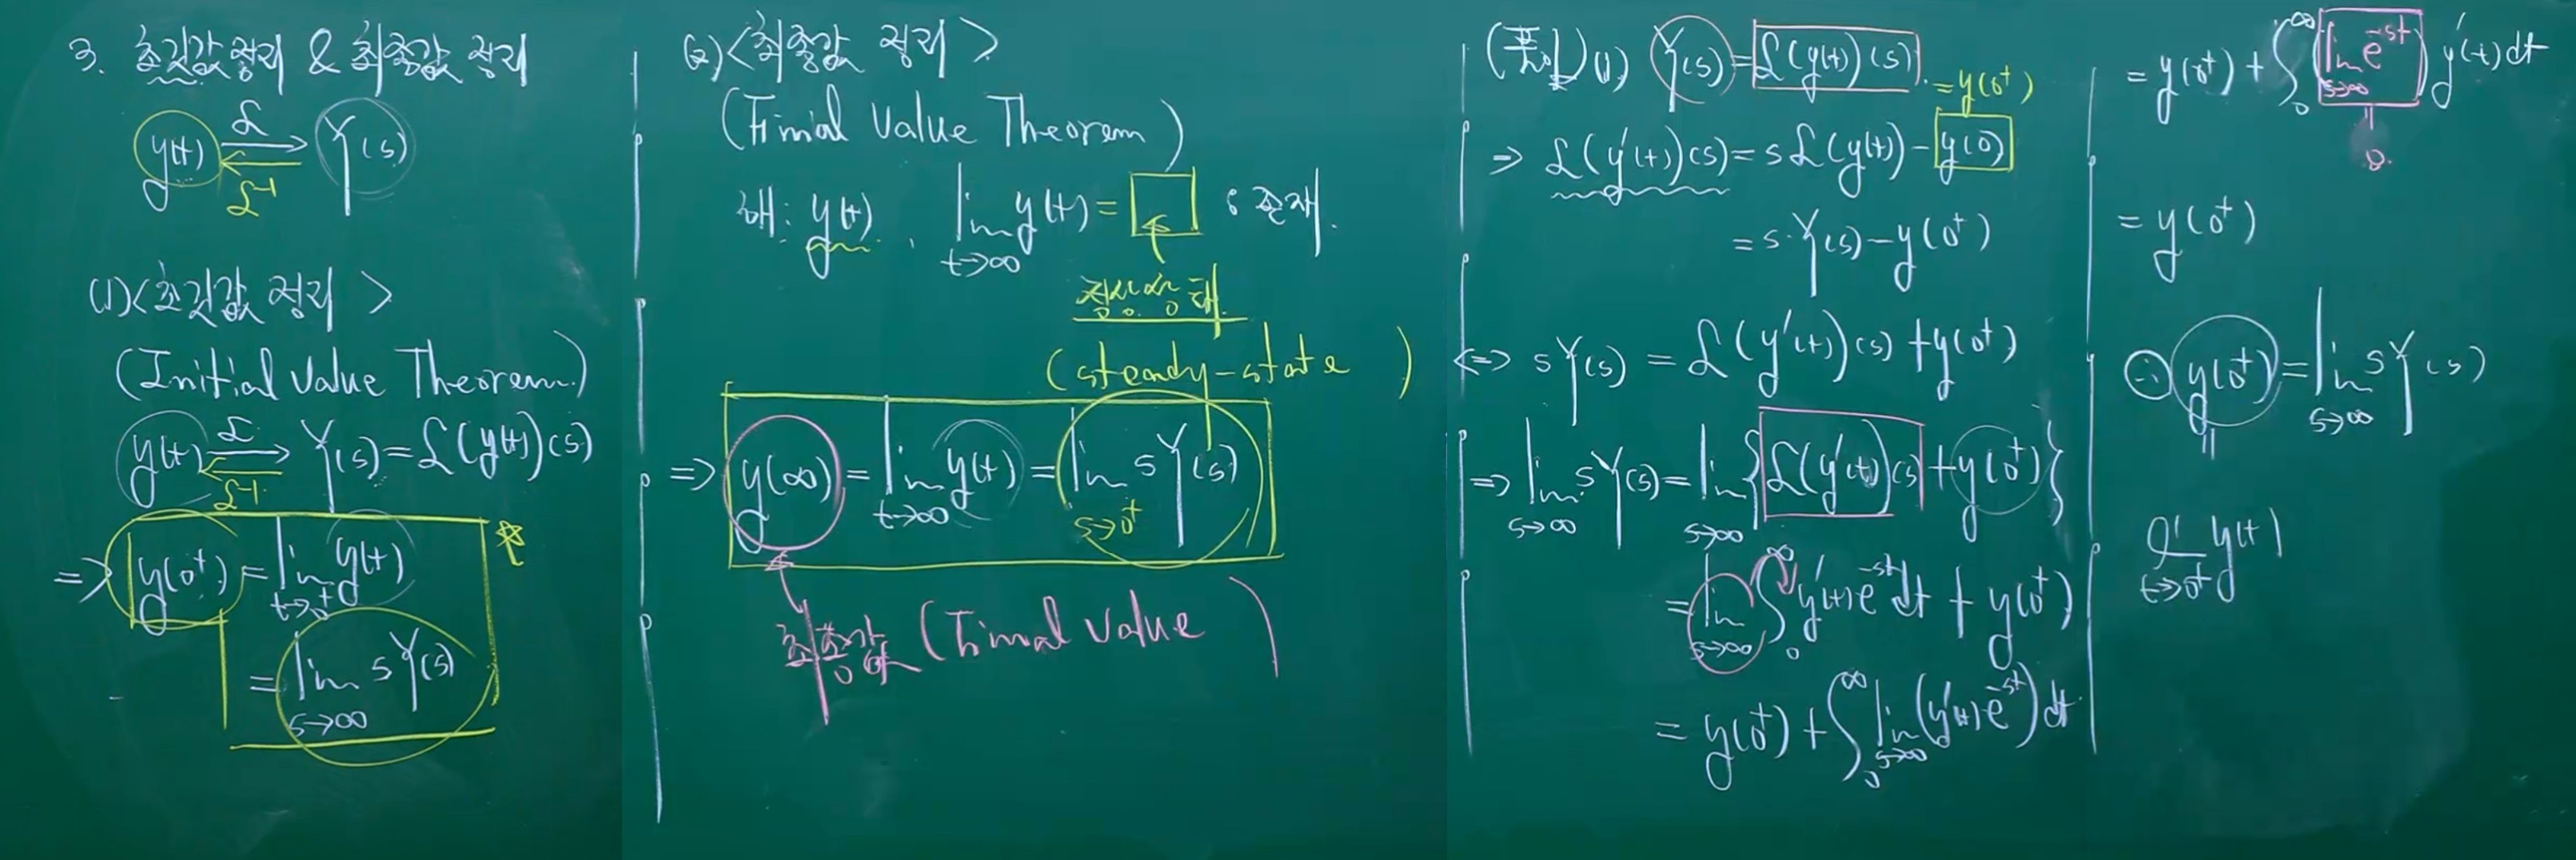 3. 초깃값 정리 & 최종값 정리
y(t) ℒ → Y(s)
← ℒ⁻¹
(1) <초깃값 정리>
(Initial Value Theorem)
y(t) ℒ → Y(s) = ℒ(y(t))(s)
← ℒ⁻¹
⇒ y(0⁺) = lim_{t→0⁺} y(t)
= lim_{s→∞} sY(s)
(2) <최종값 정리>
(Final Value Theorem)
해: y(t), lim_{t→∞} y(t) = □ : 존재.
정상상태
(steady-state)
⇒ y(∞) = lim_{t→∞} y(t) = lim_{s→0⁺} sY(s)
최종값 (Final Value)
(풀이) (1) Y(s) = ℒ(y(t))(s).
= y(0⁺)
⇒ ℒ(y'(t))(s) = sℒ(y(t)) - y(0)
= s·Y(s) - y(0⁺)
⇔ sY(s) = ℒ(y'(t))(s) + y(0⁺)
⇒ lim_{s→∞} sY(s) = lim_{s→∞} {ℒ(y'(t))(s) + y(0⁺)}
= lim_{s→∞} ∫₀^∞ y'(t)e^{-st}dt + y(0⁺)
= y(0⁺) + ∫₀^∞ lim_{s→∞} (y'(t)e^{-st})dt
= y(0⁺) + ∫₀^∞ (lim_{s→∞} e^{-st}) y'(t)dt
‖
0.
= y(0⁺)
∴ y(0⁺) = lim_{s→∞} sY(s)
‖
lim_{t→0⁺} y(t)